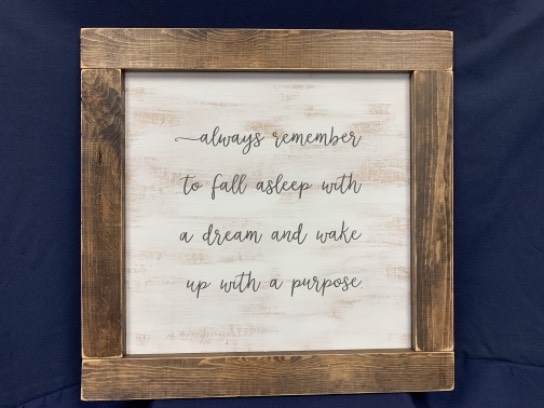 always remember
to fall asleep with
a dream and wake
up with a purpose